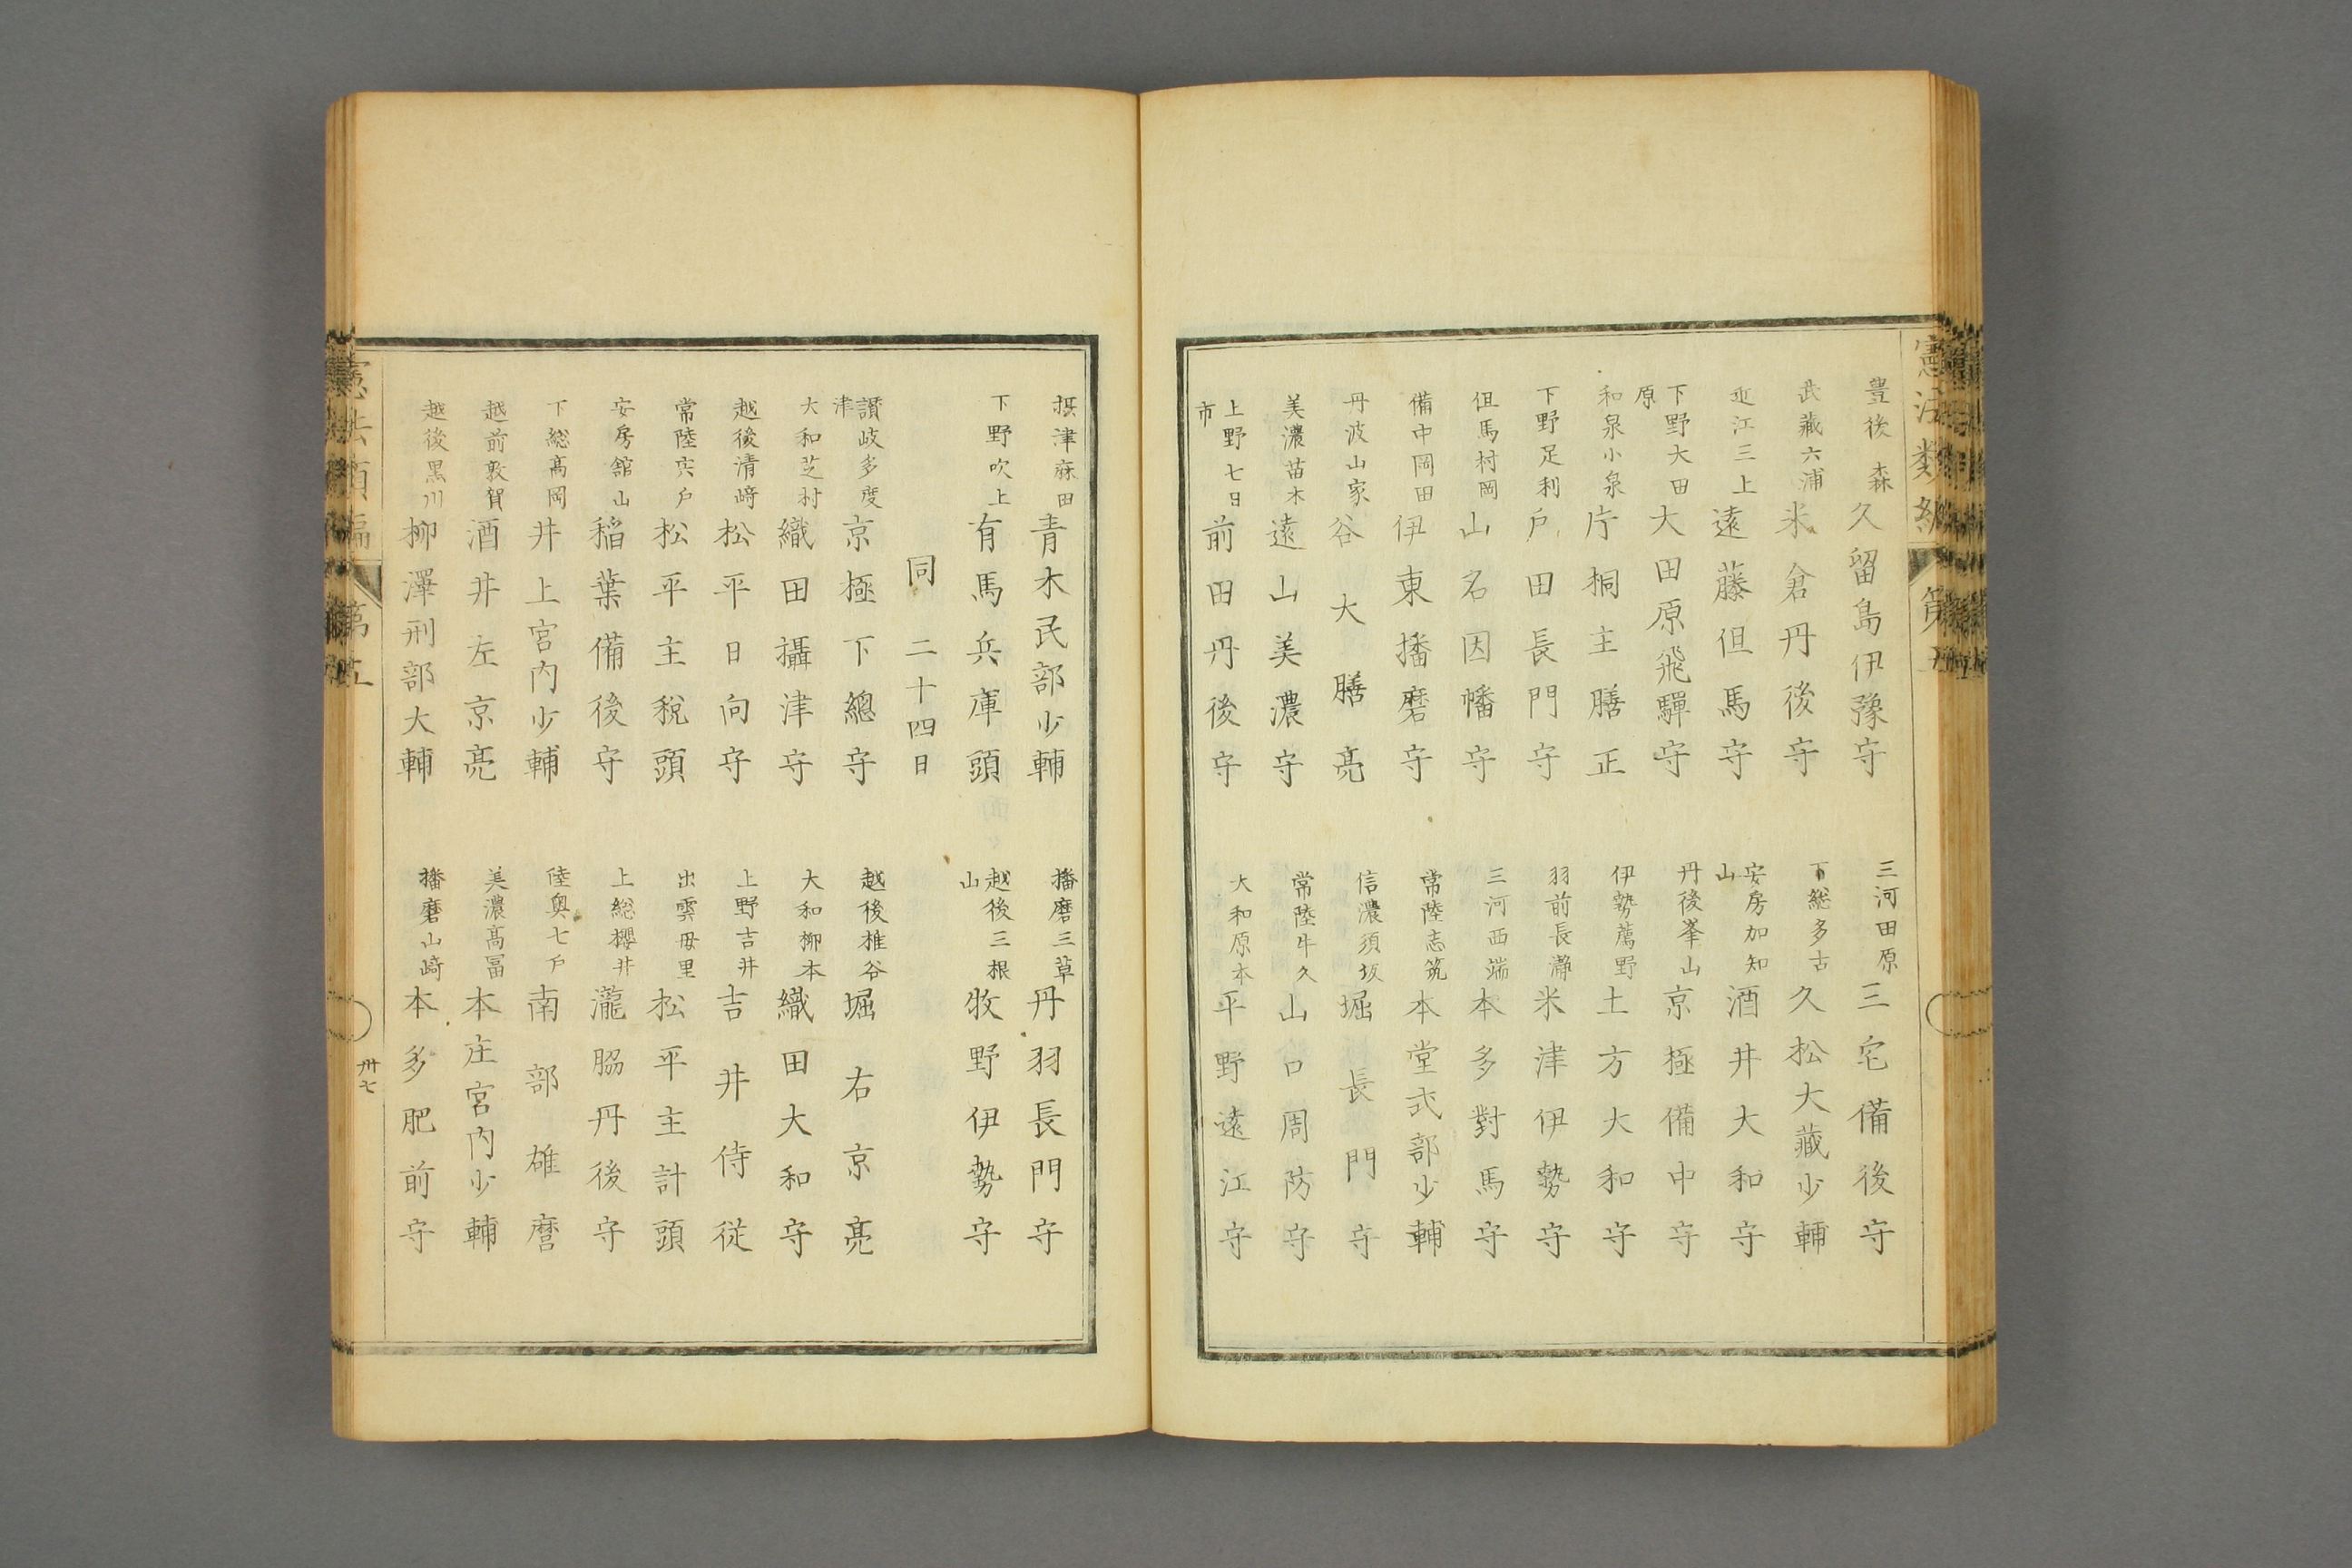 憲法類編 第五
豊後 森 久留島伊豫守 三河田原 三宅備後守
武藏六浦 米倉丹後守 下総多古 久松大藏少輔
近江三上 遠藤但馬守 安房加知山 酒井大和守
下野大田原 大田原飛驒守 丹後峯山 京極備中守
和泉小泉 片桐主膳正 伊勢薦野 土方大和守
下野足利 戸田長門守 羽前長瀞 米津伊勢守
但馬村岡 山名因幡守 三河西端 本多對馬守
備中岡田 伊東播磨守 常陸志筑 本堂式部少輔
丹波山家 谷大膳亮 信濃須坂 堀長門守
美濃苗木 遠山美濃守 常陸牛久 山口周防守
上野七日市 前田丹後守 大和原本 平野遠江守
摂津麻田 青木民部少輔 播磨三草 丹羽長門守
下野吹上 有馬兵庫頭 越後三根山 牧野伊勢守
同 二十四日
讃岐多度津 京極下總守 越後椎谷 堀右京亮
大和芝村 織田攝津守 大和柳本 織田大和守
越後清﨑 松平日向守 上野吉井 吉井侍従
常陸宍戸 松平主税頭 出雲母里 松平主計頭
安房舘山 稲葉備後守 上総櫻井 瀧脇丹後守
下総髙岡 井上宮内少輔 陸奥七戸 南部雄麿
越前敦賀 酒井左京亮 美濃髙冨 本庄宮内少輔
越後黒川 柳澤刑部大輔 播磨山﨑 本多肥前守
憲法類編 第五 卅七